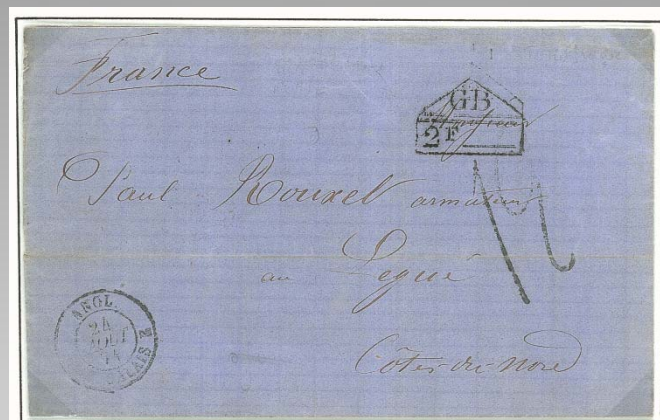 France
GB
2F
Paul Rouxel armateur
au Legué
Côtes-du-Nord
ANGL.
24
AOUT
CALAIS 2